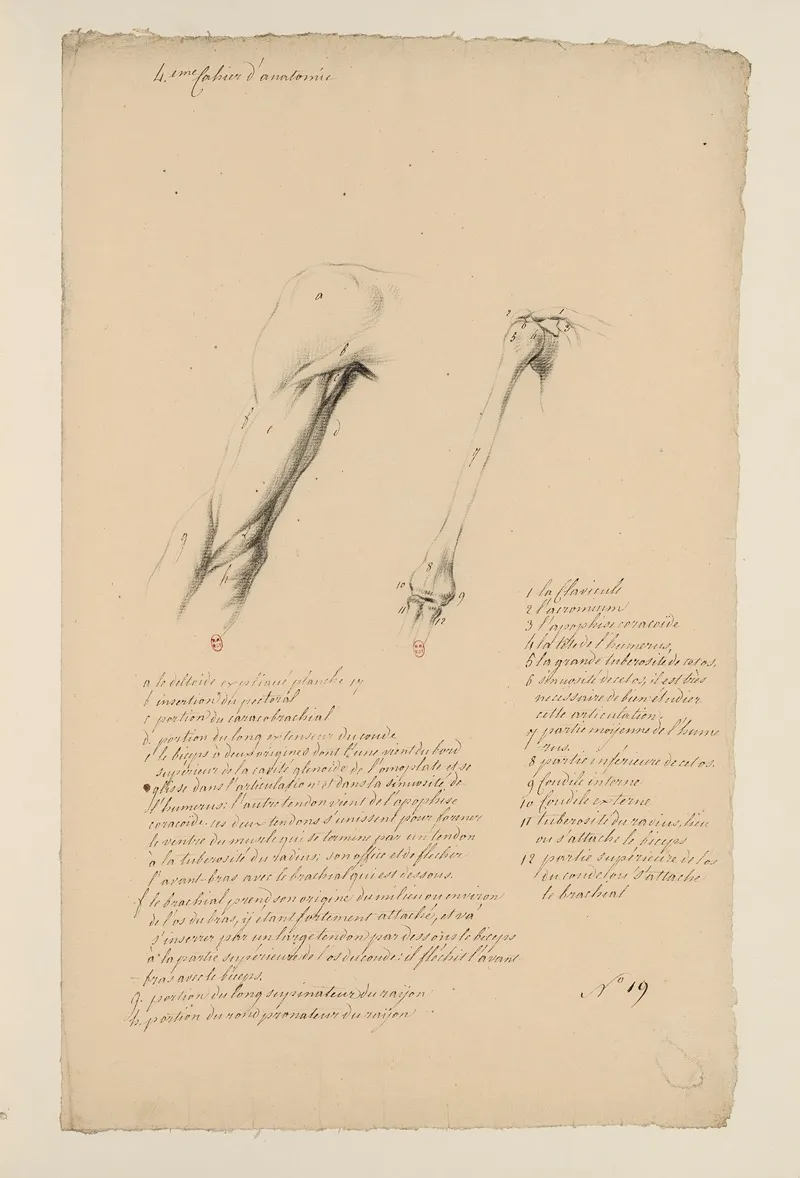 4.eme Cahier d'anatomie
a
b
c
d
e
f
g
h
i
2
1
3
6
5
4
7
8
10
9
11
12
a le deltoïde expliqué planche 17
b insertion du pectoral
c portion du caracobrachial
d portion du long extenseur du coude
e le biceps à deux origines dont l'une vient du bord
supérieur de la cavité glenoïde de l'omoplate et se
glisse dans l'articulation et dans la sinuosité de
l'humerus: l'autre tendon vient de l'apophise
coracoïde. ces deux tendons s'unissent pour former
le ventre du muscle qui se termine par un tendon
à la tuberosité du radius; son office est de flechir
l'avant-bras avec le brachial qui est dessous.
f le brachial prend son origine du milieu ou environ
de l'os du bras, y étant fortement attaché, et va
s'inserer par un large tendon par dessous le biceps
à la partie supérieure de l'os du coude: il fléchit l'avant
-bras avec le biceps.
g. portion du long supinateur du raïjon
h. portion du rond pronateur du raïjon
1 la Clavicule
2 l'acromium
3 l'apophise coracoïde
4 la tête de l'humerus,
5 la grande tuberosité de cet os.
6 sinuosité de cet os, il est très
necessaire de bien étudier
cette articulation.
7 partie moyenne de l'hume
rus.
8 partie inférieure de cet os.
9 Condile interne
10 Condile externe
11 tuberosité du radius, lieu
ou s'attache le biceps
12 partie supérieure de l'os
du coude ou s'attache
le brachial
N° 19